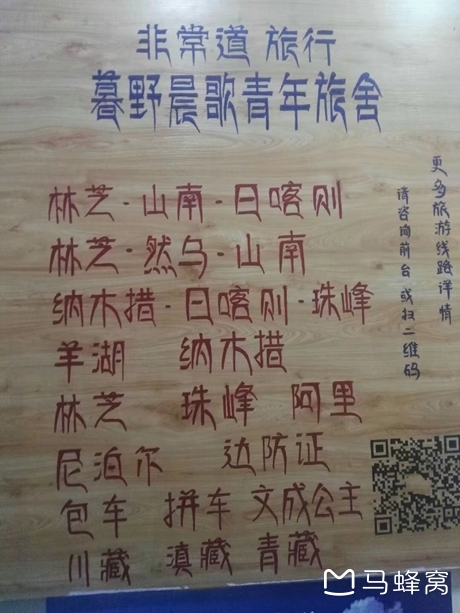 非常道 旅行
暮野晨歌青年旅舍
林芝·山南·日喀则
林芝·然乌·山南
纳木措·日喀则·珠峰
羊湖 纳木措
林芝 珠峰 阿里
尼泊尔 边防证
包车 拼车 文成公主
川藏 滇藏 青藏
更多旅游线路详情
请咨询前台或扫二维码
马蜂窝